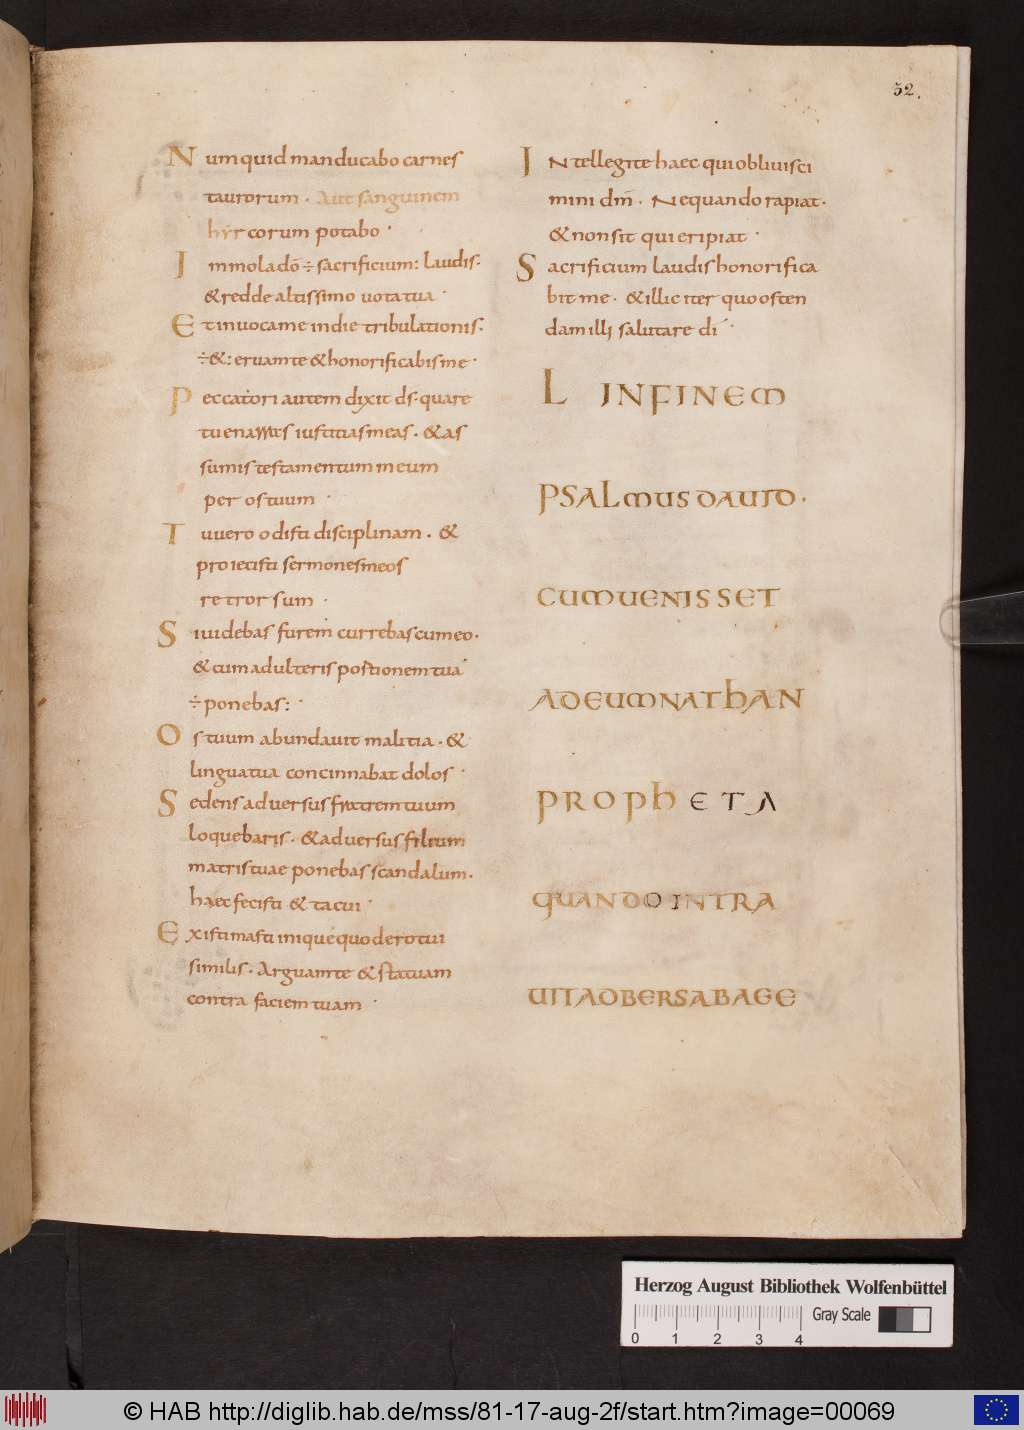 32.
Numquid manducabo carnes
taurorum · Aut sanguinem
hyrcorum potabo ·
Immola dō ÷ sacrificium: laudis·
& redde altissimo uota tua ·
Et inuoca me in die tribulationis:
÷ &: eruam te & honorificabis me ·
Peccatori autem dixit ds· quare
tu enarras iustitias meas · & as
sumis testamentum meum
per os tuum ·
Tu uero odisti disciplinam · &
proiecisti sermones meos
retrorsum ·
Si uidebas furem currebas cum eo ·
& cum adulteris portionem tuā
÷ ponebas: ·
Os tuum abundauit malitia · &
lingua tua concinnabat dolos ·
Sedens aduersus fratrem tuum
loquebaris · & aduersus filium
matris tuae ponebas scandalum ·
haec fecisti & tacui ·
Existimasti inique quod ero tui
similis · Arguam te & statuam
contra faciem tuam ·
Intellegite haec qui obliuisci
mini dm̄ · Nequando rapiat ·
& non sit qui eripiat ·
Sacrificium laudis honorifica
bit me · & illic iter quo osten
dam illi salutare dī ·
L IN FINEM
PSALMUS DAUID ·
CUM UENISSET
AD EUM NATHAN
PROPHETA
QUANDO INTRA
UIT AD BERSABAEE
Herzog August Bibliothek Wolfenbüttel
0 1 2 3 4 Gray Scale
© HAB http://diglib.hab.de/mss/81-17-aug-2f/start.htm?image=00069